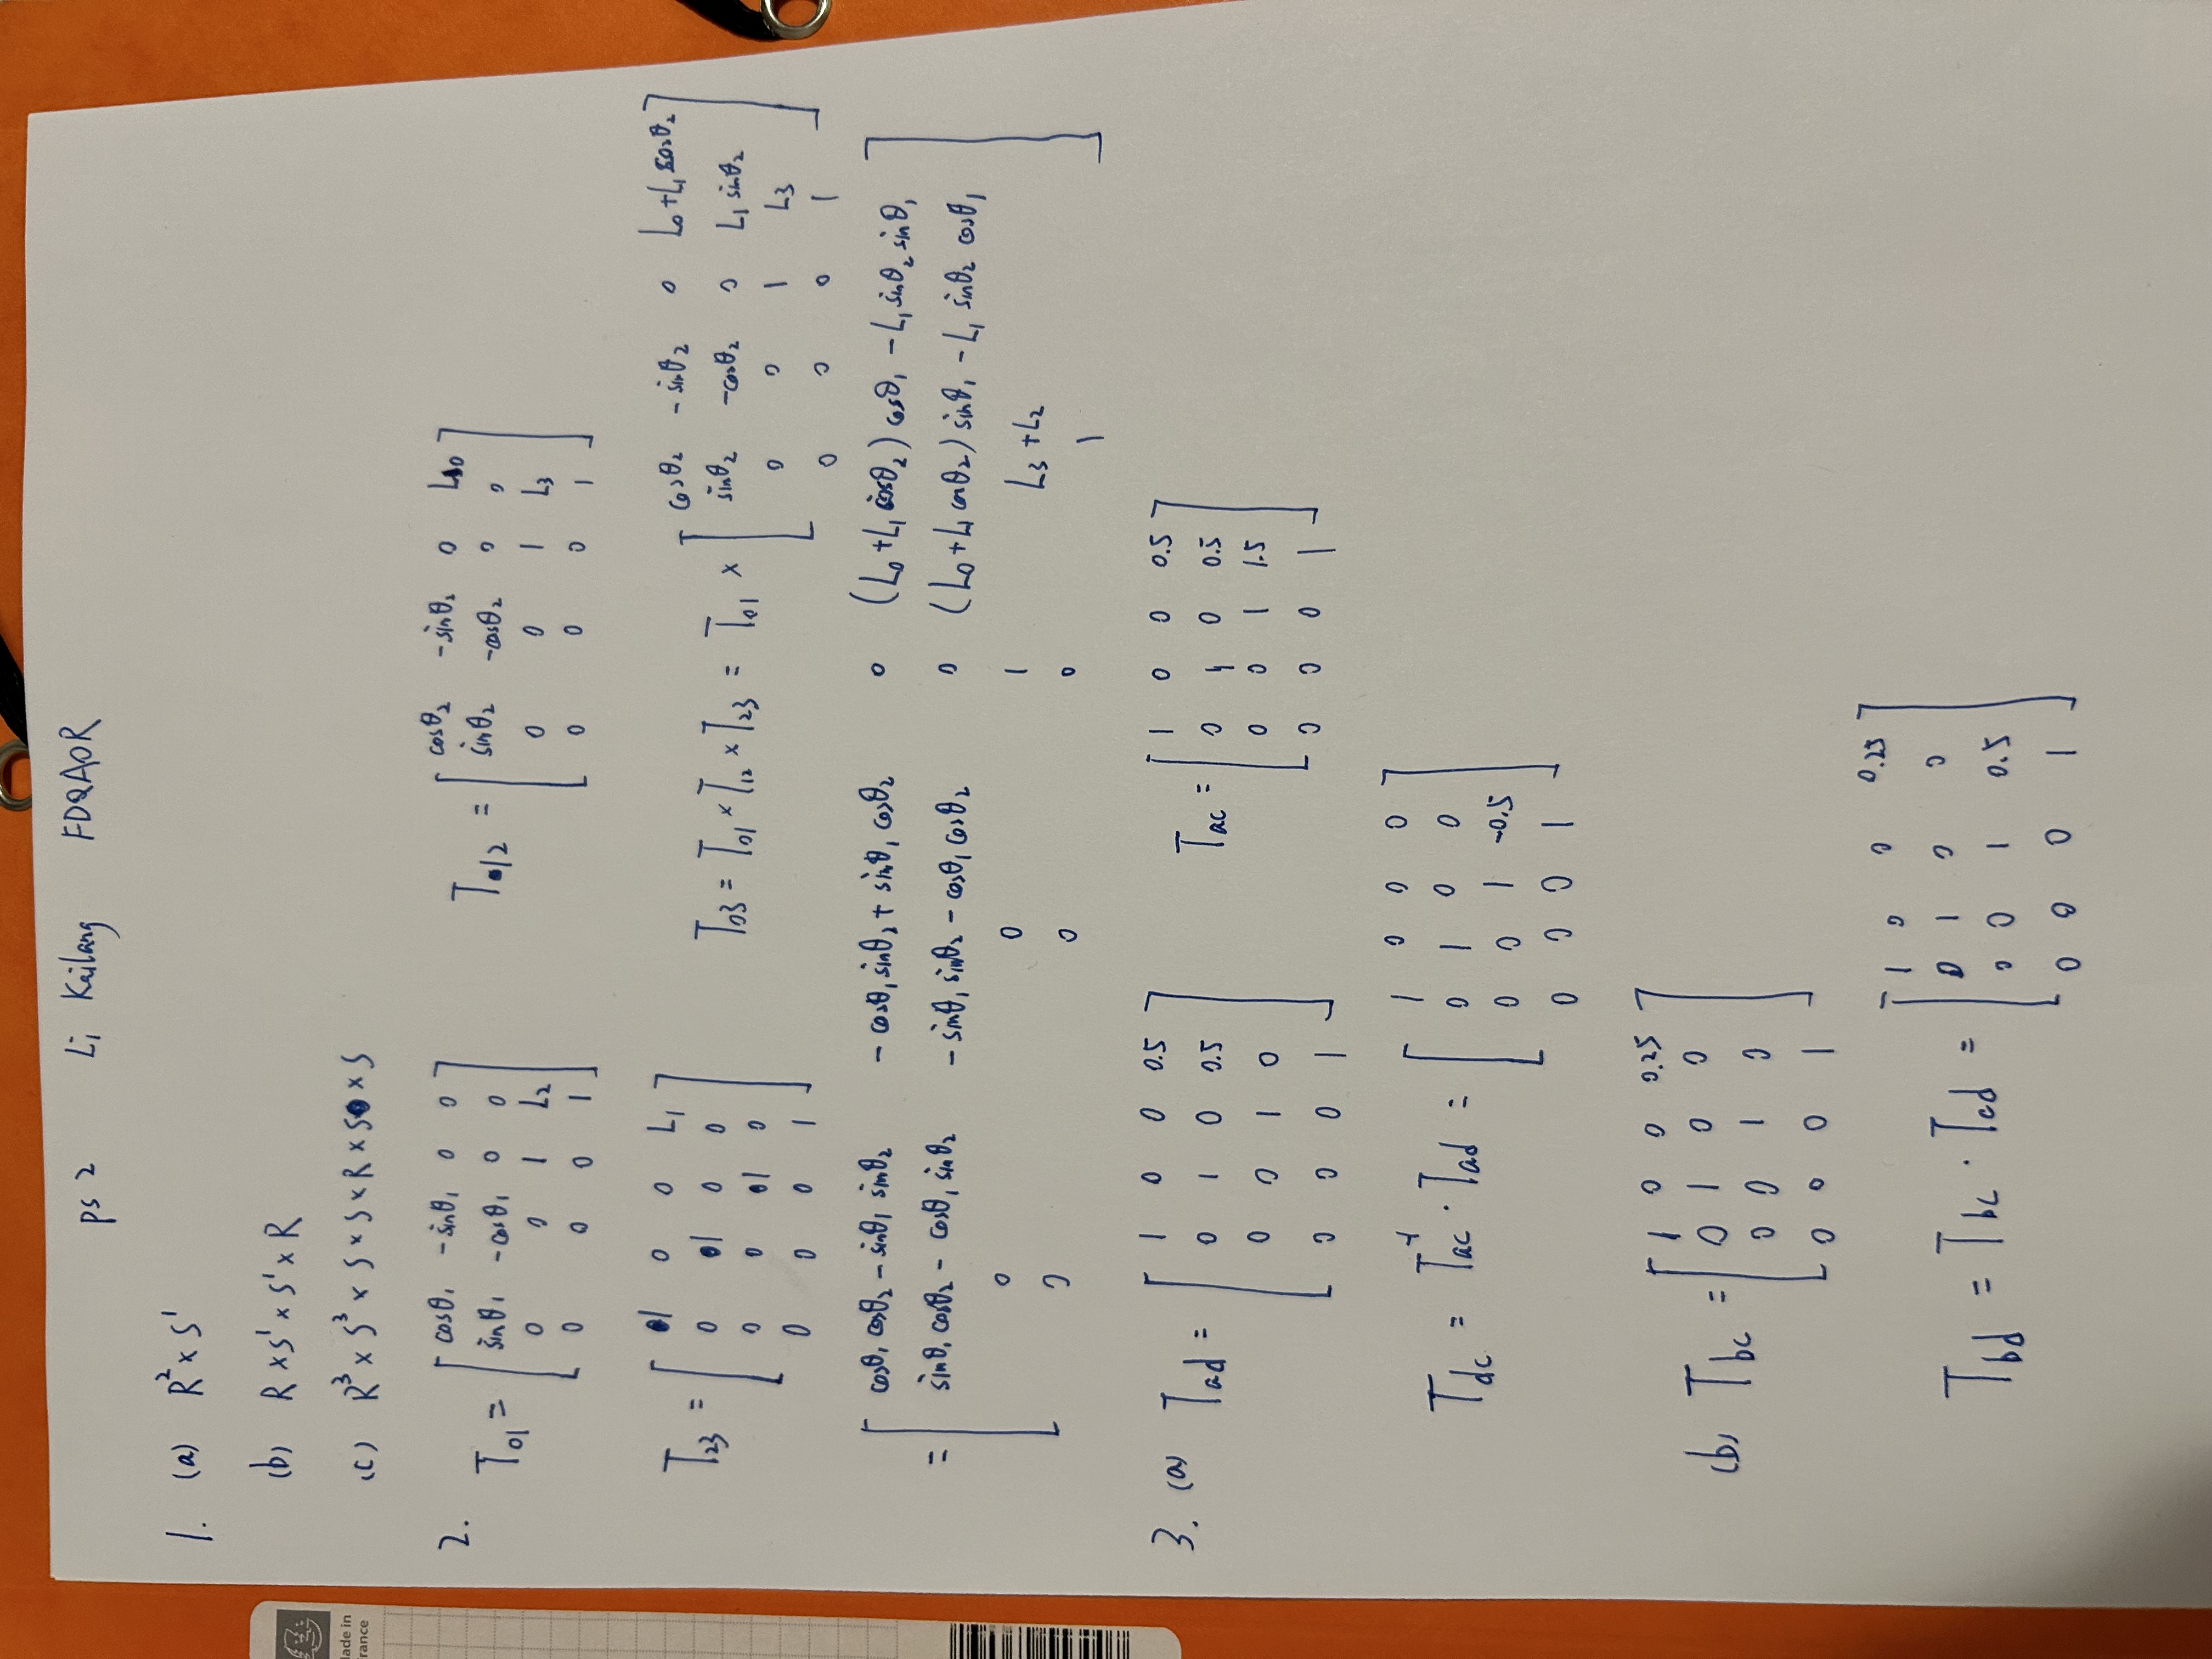 ps 2 Li Kailang FDQAOR
1. (a) R² × S¹
(b) R × S¹ × S¹ × R
(c) R³ × S³ × S × S × R × S × S
2.
T₀₁ = [ cosθ₁ -sinθ₁ 0 0
sinθ₁ -cosθ₁ 0 0
0 0 1 L₂
0 0 0 1 ]
T₁₂ = [ cosθ₂ -sinθ₂ 0 L₀
sinθ₂ -cosθ₂ 0 0
0 0 1 L₃
0 0 0 1 ]
T₂₃ = [ 1 0 0 L₁
0 1 0 0
0 0 1 0
0 0 0 1 ]
T₀₃ = T₀₁ × T₁₂ × T₂₃ = T₀₁ × [ cosθ₂ -sinθ₂ 0 L₀+L₁cosθ₂
sinθ₂ -cosθ₂ 0 L₁sinθ₂
0 0 1 L₃
0 0 0 1 ]
= [ cosθ₁cosθ₂ - sinθ₁sinθ₂ -cosθ₁sinθ₂ + sinθ₁cosθ₂ 0 (L₀+L₁cosθ₂)cosθ₁ - L₁sinθ₂sinθ₁
sinθ₁cosθ₂ - cosθ₁sinθ₂ -sinθ₁sinθ₂ - cosθ₁cosθ₂ 0 (L₀+L₁cosθ₂)sinθ₁ - L₁sinθ₂cosθ₁
0 0 1 L₃+L₂
0 0 0 1 ]
3. (a) Tad = [ 1 0 0 0.5
0 1 0 0.5
0 0 1 0
0 0 0 1 ]
Tac = [ 1 0 0 0.5
0 1 0 0.5
0 0 1 1.5
0 0 0 1 ]
Tdc = Tac⁻¹ · Tad = [ 1 0 0 0
0 1 0 0
0 0 1 -0.5
0 0 0 1 ]
(b) Tbc = [ 1 0 0 0.25
0 1 0 0
0 0 1 0
0 0 0 1 ]
Tbd = Tbc · Tcd = [ 1 0 0 0.25
0 1 0 0
0 0 1 0.5
0 0 0 1 ]